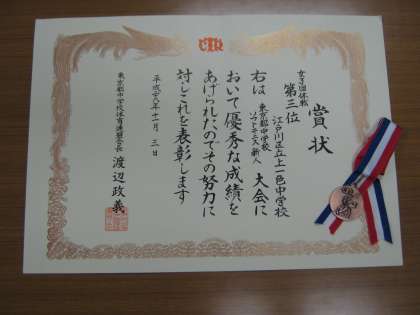 賞状
女子団体戦
第三位
江戸川区立上一色中学校
右は 東京都中学校
ソフトテニス新人 大会に
おいて優秀な成績を
あげられたのでその努力に
対しこれを表彰します
平成十八年十一月三日
東京都中学校体育連盟会長 渡辺政義